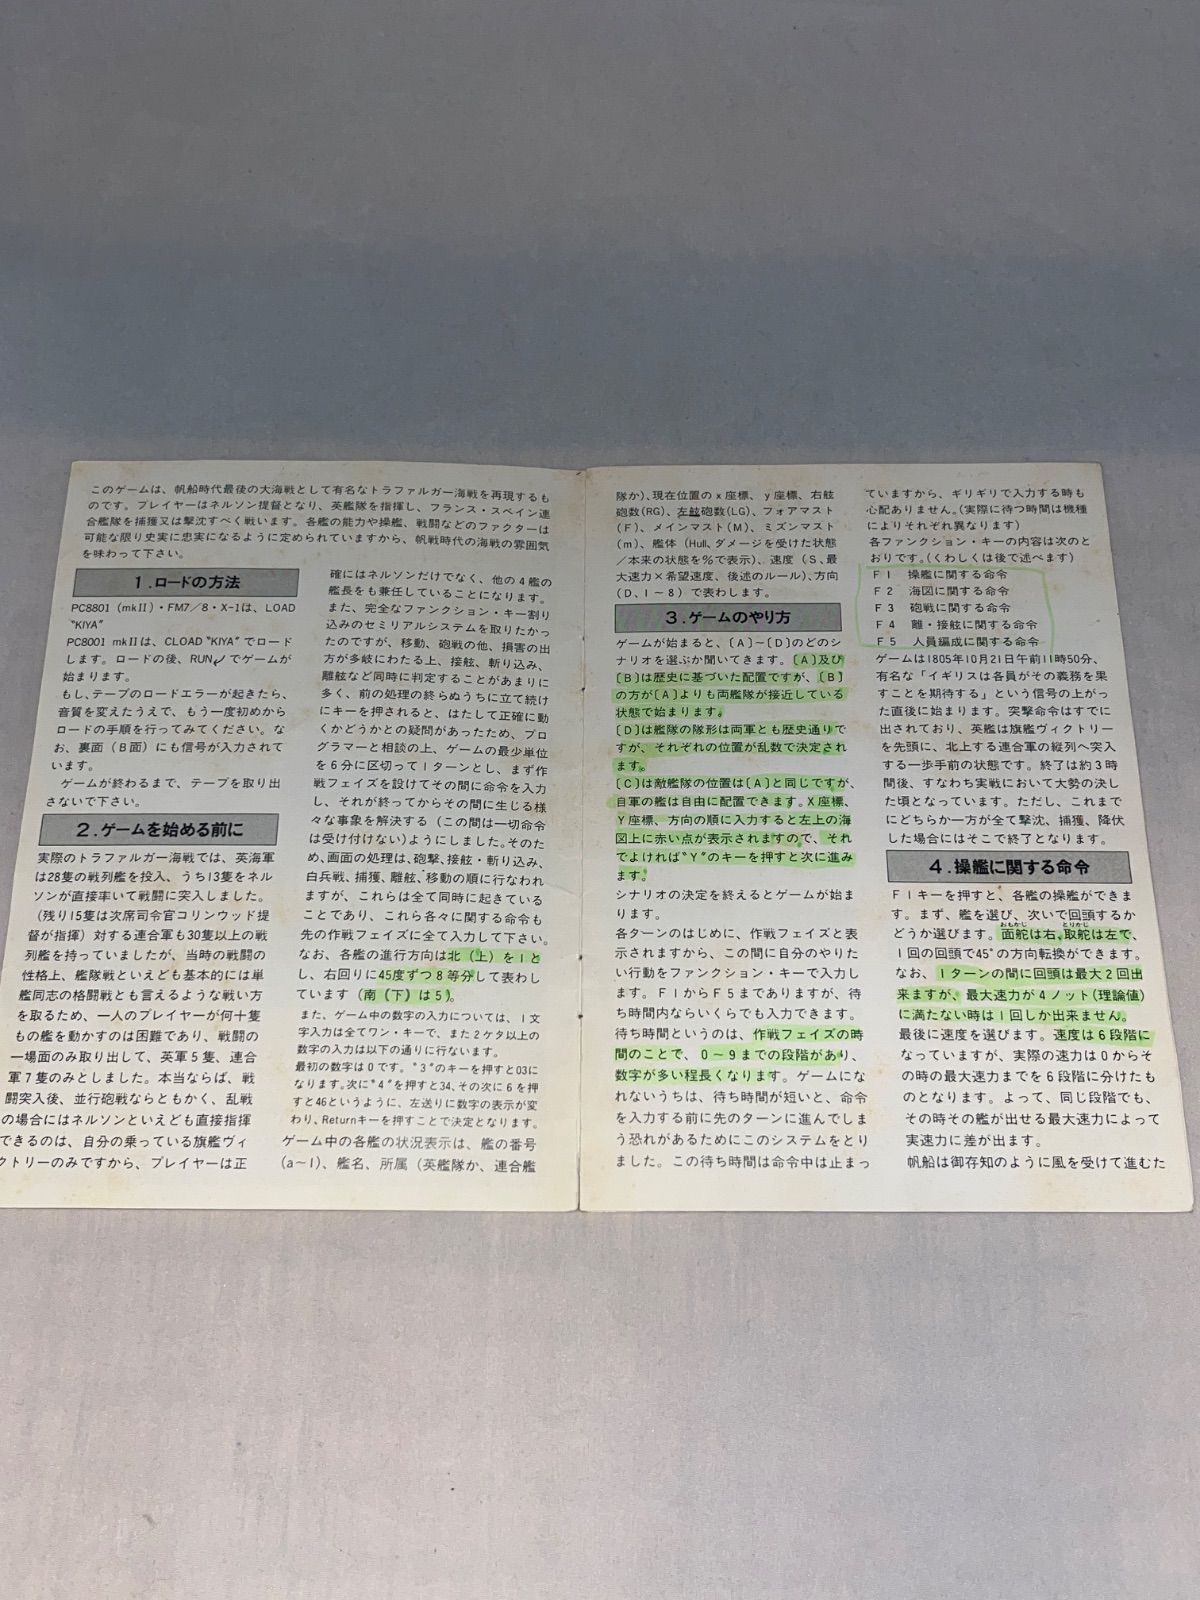 このゲームは、帆船時代最後の大海戦として有名なトラファルガー海戦を再現するも
のです。プレイヤーはネルソン提督となり、英艦隊を指揮し、フランス・スペイン連
合艦隊を捕獲又は撃沈すべく戦います。各艦の能力や操艦、戦闘などのファクターは
可能な限り史実に忠実になるように定められていますから、帆戦時代の海戦の雰囲気
を味わって下さい。
1.ロードの方法
PC8801(mkII)・FM7/8・X-1は、LOAD
"KIYA"
PC8001 mkIIは、CLOAD"KIYA"でロード
します。ロードの後、RUN↲でゲームが
始まります。
もし、テープのロードエラーが起きたら、
音質を変えたうえで、もう一度初めから
ロードの手順を行ってみてください。な
お、裏面(B面)にも信号が入力されて
います。
ゲームが終わるまで、テープを取り出
さないで下さい。
2.ゲームを始める前に
実際のトラファルガー海戦では、英海軍
は28隻の戦列艦を投入、うち13隻をネル
ソンが直接率いて戦闘に突入しました。
(残り15隻は次席司令官コリンウッド提
督が指揮)対する連合軍も30隻以上の戦
列艦を持っていましたが、当時の戦闘の
性格上、艦隊戦といえども基本的には単
艦同志の格闘戦とも言えるような戦い方
を取るため、一人のプレイヤーが何十隻
もの艦を動かすのは困難であり、戦闘の
一場面のみ取り出して、英軍5隻、連合
軍7隻のみとしました。本当ならば、戦
闘突入後、並行砲戦ならともかく、乱戦
の場合にはネルソンといえども直接指揮
できるのは、自分の乗っている旗艦ヴィ
クトリーのみですから、プレイヤーは正
確にはネルソンだけでなく、他の4艦の
艦長をも兼任していることになります。
また、完全なファンクション・キー割り
込みのセミリアルシステムを取りたかっ
たのですが、移動、砲戦の他、損害の出
方が多岐にわたる上、接舷、斬り込み、
離舷など同時に判定することがあまりに
多く、前の処理の終らぬうちに立て続け
にキーを押されると、はたして正確に動
くかどうかとの疑問があったため、プロ
グラマーと相談の上、ゲームの最少単位
を6分に区切って1ターンとし、まず作
戦フェイズを設けてその間に命令を入力
し、それが終ってからその間に生じる様
々な事象を解決する(この間は一切命令
は受け付けない)ようにしました。そのた
め、画面の処理は、砲撃、接舷・斬り込み、
白兵戦、捕獲、離舷、移動の順に行なわれ
ますが、これらは全て同時に起きている
ことであり、これら各々に関する命令も
先の作戦フェイズに全て入力して下さい。
なお、各艦の進行方向は北(上)を1と
し、右回りに45度ずつ8等分して表わし
ています(南(下)は5)。
また、ゲーム中の数字の入力については、1文
字入力は全てワン・キーで、また2ケタ以上の
数字の入力は以下の通りに行ないます。
最初の数字は0です。"3"のキーを押すと03に
なります。次に"4"を押すと34、その次に6を押
すと46というように、左送りに数字の表示が変
わり、Returnキーを押すことで決定となります。
ゲーム中の各艦の状況表示は、艦の番号
(a〜l)、艦名、所属(英艦隊か、連合艦
隊か)、現在位置のx座標、y座標、右舷
砲数(RG)、左舷砲数(LG)、フォアマスト
(F)、メインマスト(M)、ミズンマスト
(m)、艦体(Hull、ダメージを受けた状態
/本来の状態を%で表示)、速度(S、最
大速力×希望速度、後述のルール)、方向
(D、1〜8)で表わします。
3.ゲームのやり方
ゲームが始まると、[A]〜[D]のどのシ
ナリオを選ぶか聞いてきます。[A]及び
[B]は歴史に基づいた配置ですが、[B]
の方が[A]よりも両艦隊が接近している
状態で始まります。
[D]は艦隊の隊形は両軍とも歴史通りで
すが、それぞれの位置が乱数で決定され
ます。
[C]は敵艦隊の位置は[A]と同じですが、
自軍の艦は自由に配置できます。X座標、
Y座標、方向の順に入力すると左上の海
図上に赤い点が表示されますので、それ
でよければ"Y"のキーを押すと次に進み
ます。
シナリオの決定を終えるとゲームが始ま
ります。
各ターンのはじめに、作戦フェイズと表
示されますから、この間に自分のやりた
い行動をファンクション・キーで入力し
ます。F1からF5までありますが、待
ち時間内ならいくらでも入力できます。
待ち時間というのは、作戦フェイズの時
間のことで、0〜9までの段階があり、
数字が多い程長くなります。ゲームにな
れないうちは、待ち時間が短いと、命令
を入力する前に先のターンに進んでしま
う恐れがあるためにこのシステムをとり
ました。この待ち時間は命令中は止まっ
ていますから、ギリギリで入力する時も
心配ありません。(実際に待つ時間は機種
によりそれぞれ異なります)
各ファンクション・キーの内容は次のと
おりです。(くわしくは後で述べます)
F1 操艦に関する命令
F2 海図に関する命令
F3 砲戦に関する命令
F4 離・接舷に関する命令
F5 人員編成に関する命令
ゲームは1805年10月21日午前11時50分、
有名な「イギリスは各員がその義務を果
すことを期待する」という信号の上がっ
た直後に始まります。突撃命令はすでに
出されており、英艦は旗艦ヴィクトリー
を先頭に、北上する連合軍の縦列へ突入
する一歩手前の状態です。終了は約3時
間後、すなわち実戦において大勢の決し
た頃となっています。ただし、これまで
にどちらか一方が全て撃沈、捕獲、降伏
した場合にはそこで終了となります。
4.操艦に関する命令
F1キーを押すと、各艦の操艦ができま
す。まず、艦を選び、次いで回頭するか
どうか選びます。面舵(おもかじ)は右、取舵(とりかじ)は左で、
1回の回頭で45°の方向転換ができます。
なお、1ターンの間に回頭は最大2回出
来ますが、最大速力が4ノット(理論値)
に満たない時は1回しか出来ません。
最後に速度を選びます。速度は6段階に
なっていますが、実際の速力は0からそ
の時の最大速力までを6段階に分けたも
のとなります。よって、同じ段階でも、
その時その艦が出せる最大速力によって
実速力に差が出ます。
帆船は御存知のように風を受けて進むた